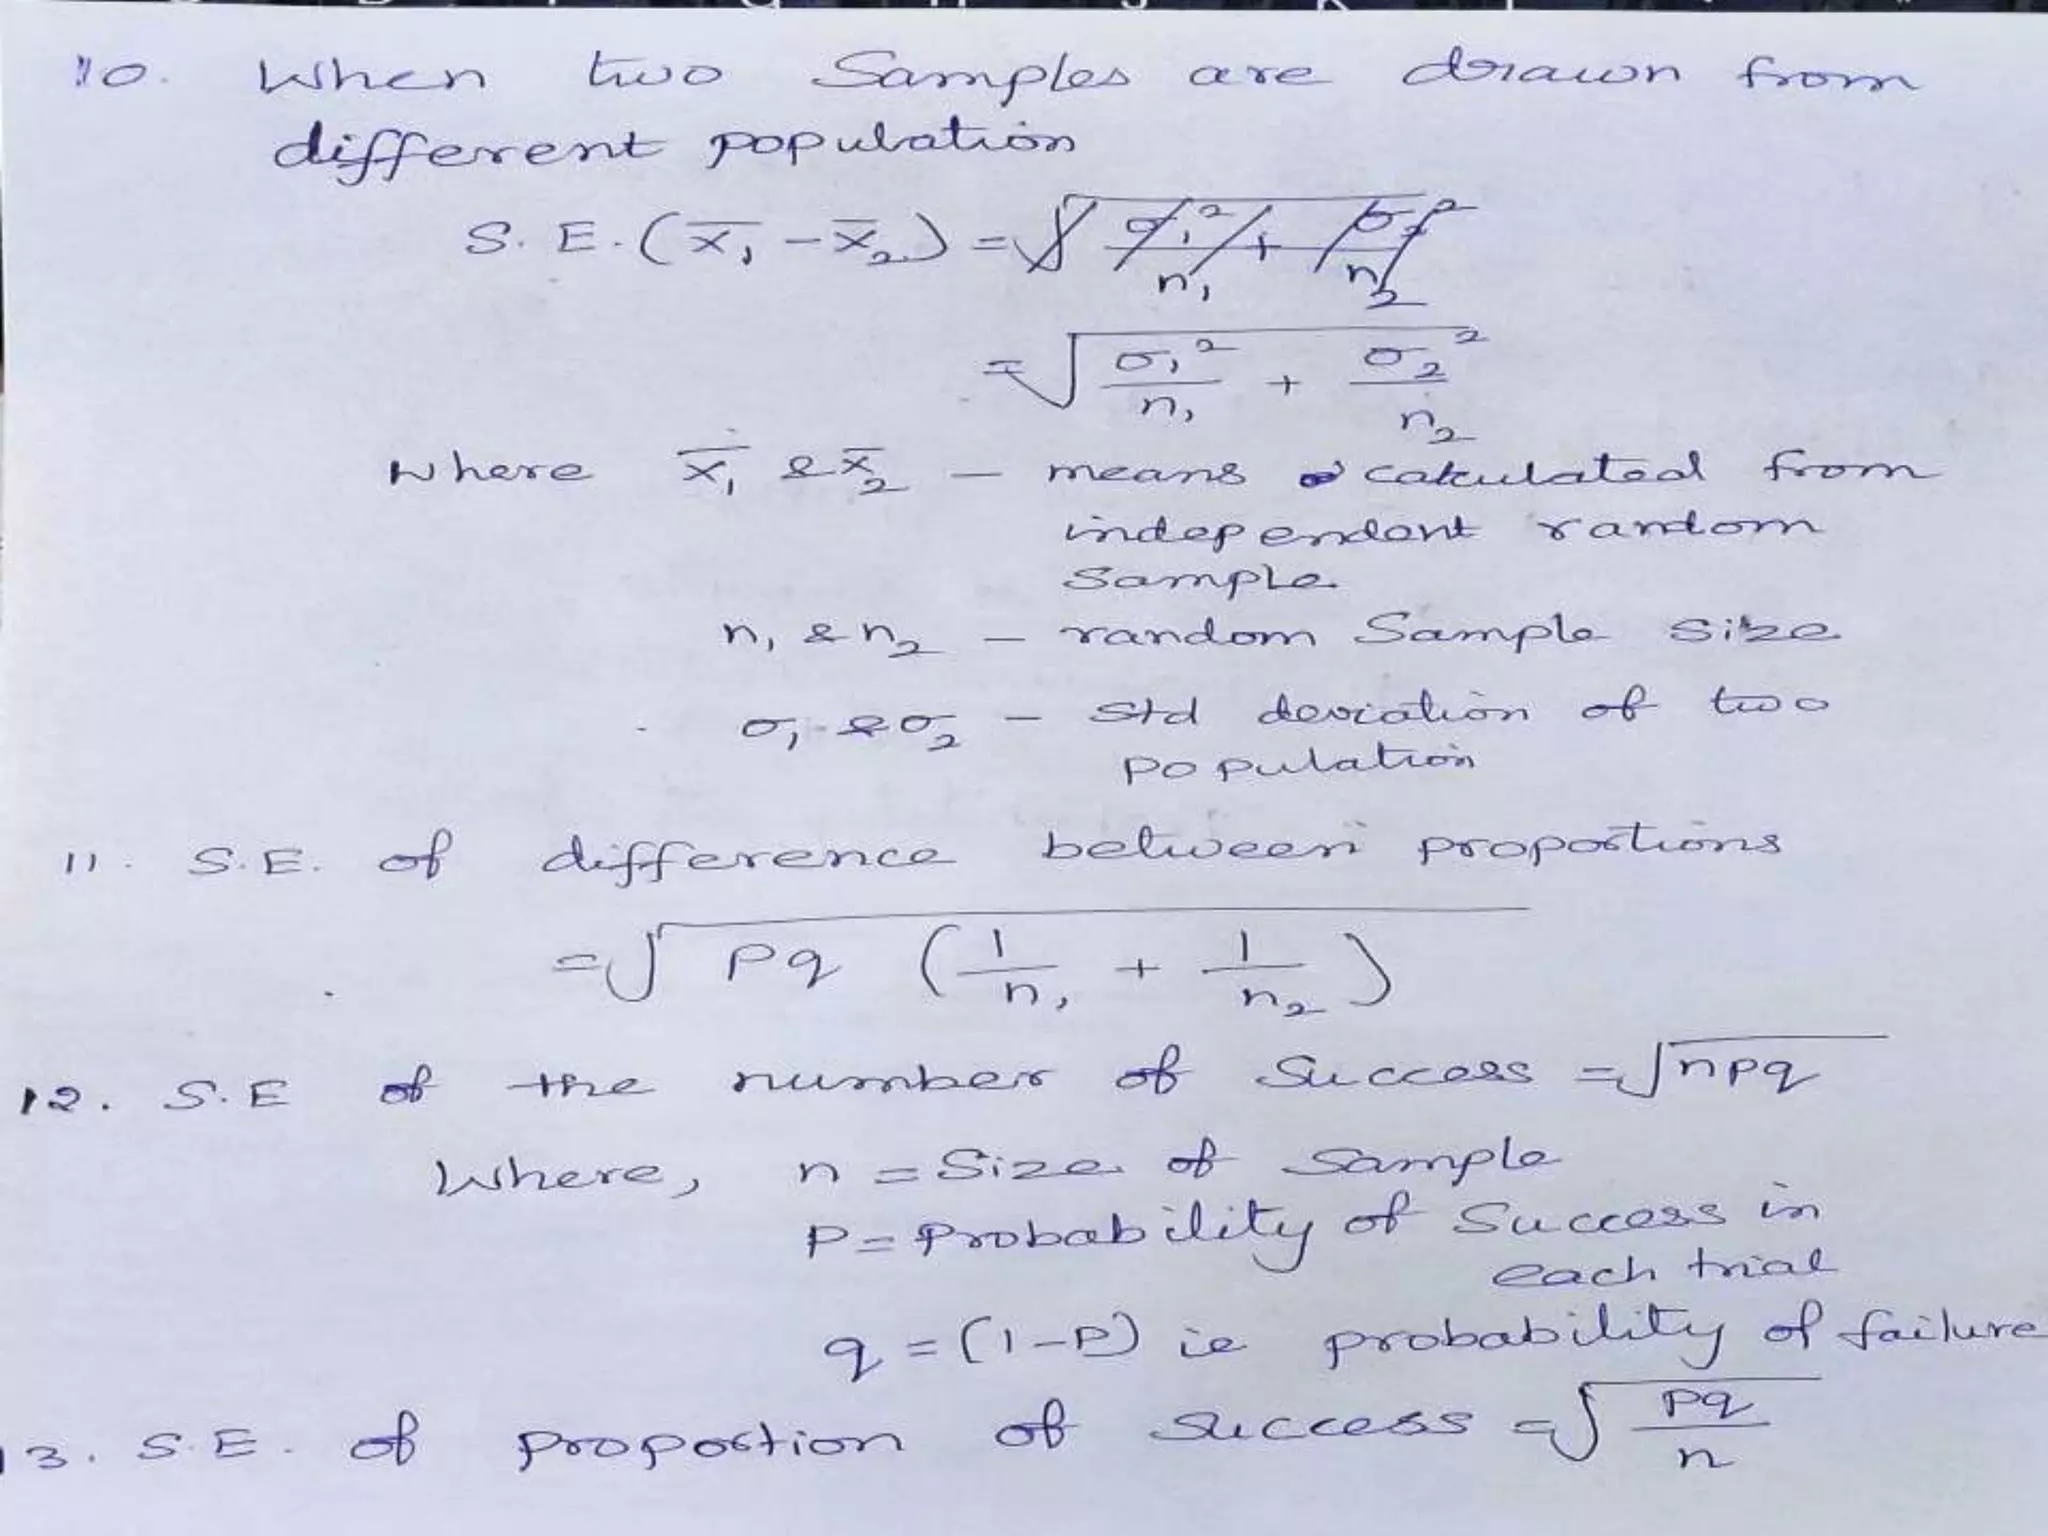 10. When two Samples are drawn from
different population
S.E.(x̄₁ - x̄₂) = √(σ₁²/n₁ + σ₂²/n₂)
= √(σ₁²/n₁ + σ₂²/n₂)
where x̄₁ & x̄₂ - means calculated from
independent random
Sample
n₁ & n₂ - random Sample Size
σ₁ & σ₂ - Std deviation of two
population
11. S.E. of difference between proportions
= √(pq (1/n₁ + 1/n₂))
12. S.E of the number of Success = √npq
Where, n = Size of Sample
P = Probability of Success in
each trial
q = (1-P) ie probability of failure
13. S.E. of proportion of success = √(pq/n)